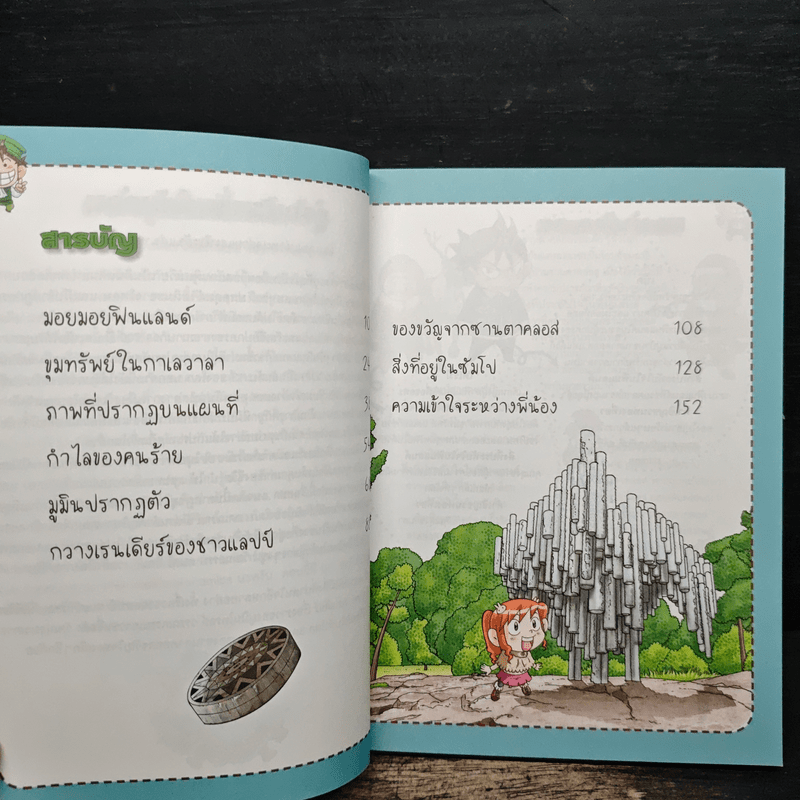 สารบัญ
มอยมอยฟินแลนด์ 10
ขุมทรัพย์ในกาเลวาลา 24
ภาพที่ปรากฏบนแผนที่
กำไลของคนร้าย
มูมินปรากฏตัว
กวางเรนเดียร์ของชาวแลปป์
ของขวัญจากซานตาคลอส 108
สิ่งที่อยู่ในซัมโป 128
ความเข้าใจระหว่างพี่น้อง 152